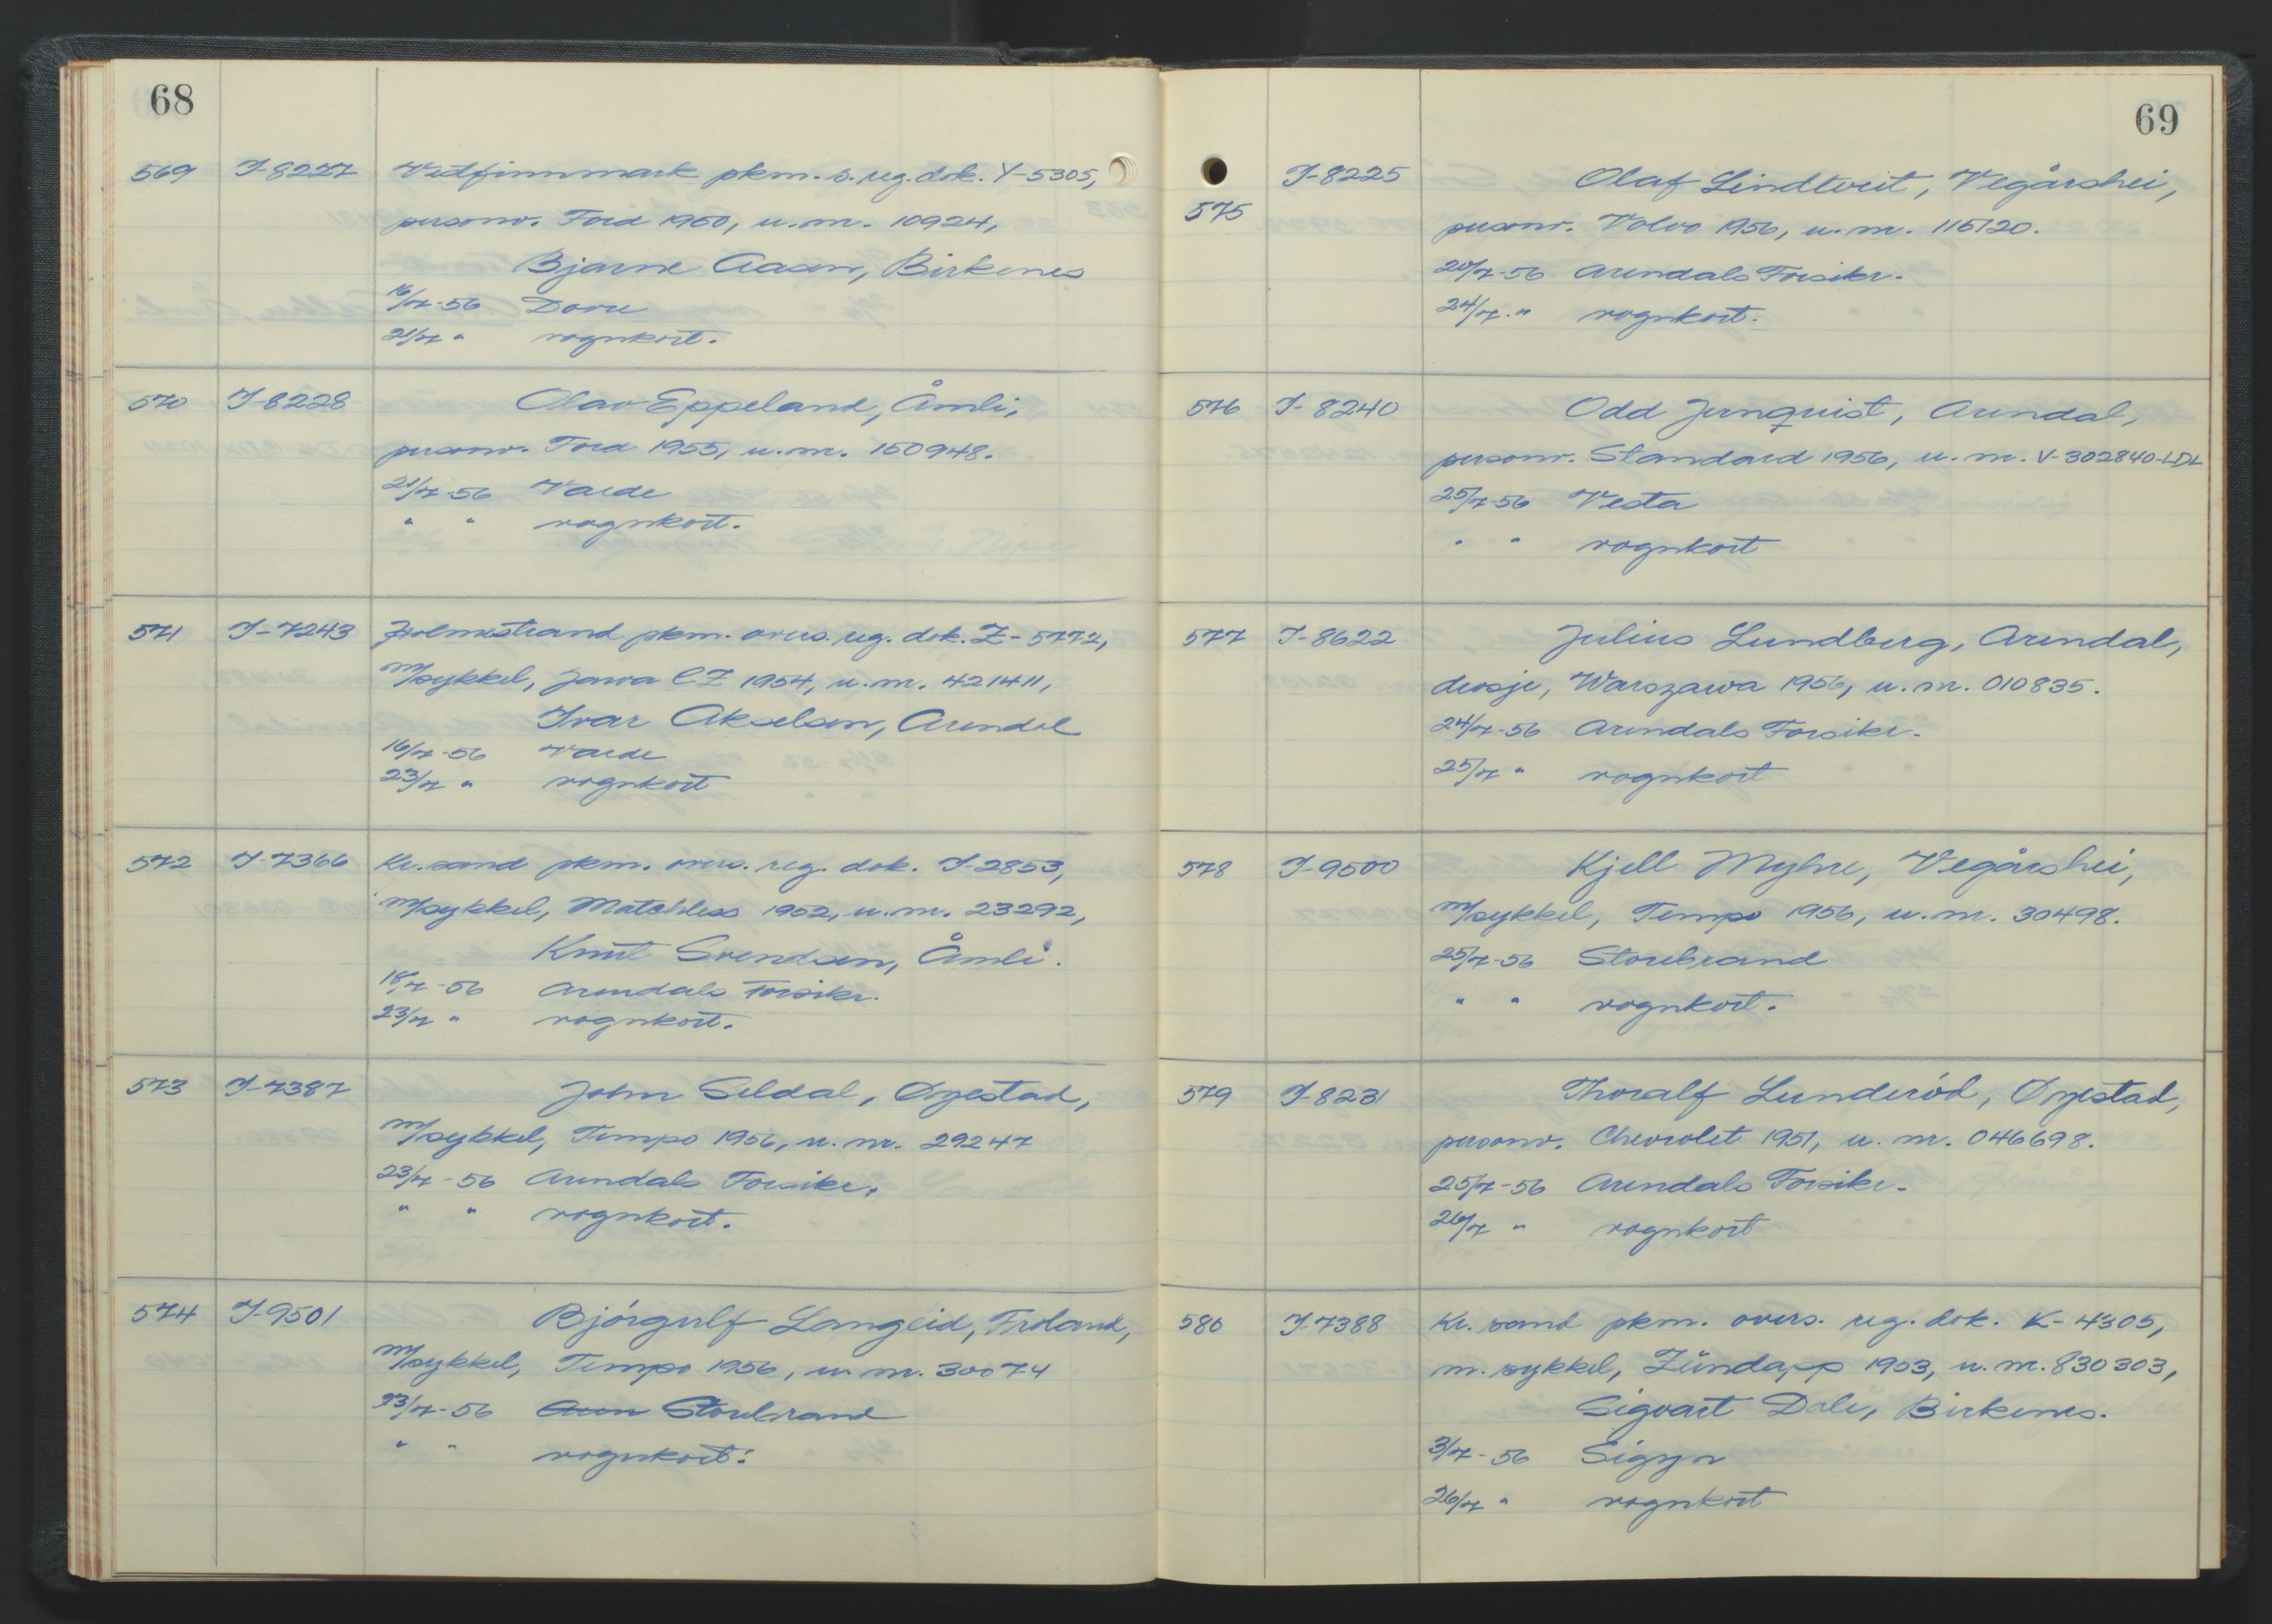 68
569 I-8227 Vestfinnmark pkm. o. reg. dok. Y-5305,
personv. Ford 1950, u.m. 10924,
Bjarne Aasen, Birkenes
16/7-56 Dovre
21/7 " vognkort.
570 I-8228 Olav Eppeland, Åmli,
personv. Ford 1955, u.m. 150948.
21/7-56 Varde
" " vognkort.
571 I-7243 Holmestrand pkm. overs. reg. dok. Z-5772,
m/sykkel, Jawa CZ 1954, u.m. 421411,
Ivar Akselsen, Arendal
16/7-56 Varde
23/7 " vognkort
572 I-7366 Kr.sand pkm. overs. reg. dok. I-2853,
m/sykkel, Matchless 1952, u.m. 23292,
Knut Svendsen, Åmli.
18/7-56 Arendals Forsikr.
23/7 " vognkort.
573 I-7387 John Seldal, Øyestad,
m/sykkel, Tempo 1956, u.m. 29247
23/7-56 Arendals Forsikr.
" " vognkort.
574 I-9501 Bjørgulf Langeid, Froland,
m/sykkel, Tempo 1956, u.m. 30074
23/7-56 Aren Storebrand
" " vognkort.
69
575 I-8225 Olaf Lindtveit, Vegårshei,
personv. Volvo 1956, u.m. 115120.
20/7-56 Arendals Forsikr.
24/7-" vognkort.
576 I-8240 Odd Jernquist, Arendal,
personv. Standard 1956, u.m. V-302840-LDL
25/7-56 Vesta
" " vognkort
577 I-8622 Julius Lundberg, Arendal,
drosje, Warszawa 1956, u.m. 010835.
24/7-56 Arendals Forsikr.
25/7 " vognkort
578 I-9500 Kjell Myhre, Vegårshei,
m/sykkel, Tempo 1956, u.m. 30498.
25/7-56 Storebrand
" " vognkort.
579 I-8231 Thoralf Lunderød, Øyestad,
personv. Chevrolet 1951, u.m. 046698.
25/7-56 Arendals Forsikr.
26/7 " vognkort
580 I-7388 Kr.sand pkm. overs. reg. dok. K-4305,
m.sykkel, Zündapp 1953, u.m. 830303,
Sigvart Dale, Birkenes.
3/7-56 Sigyn
26/7 " vognkort